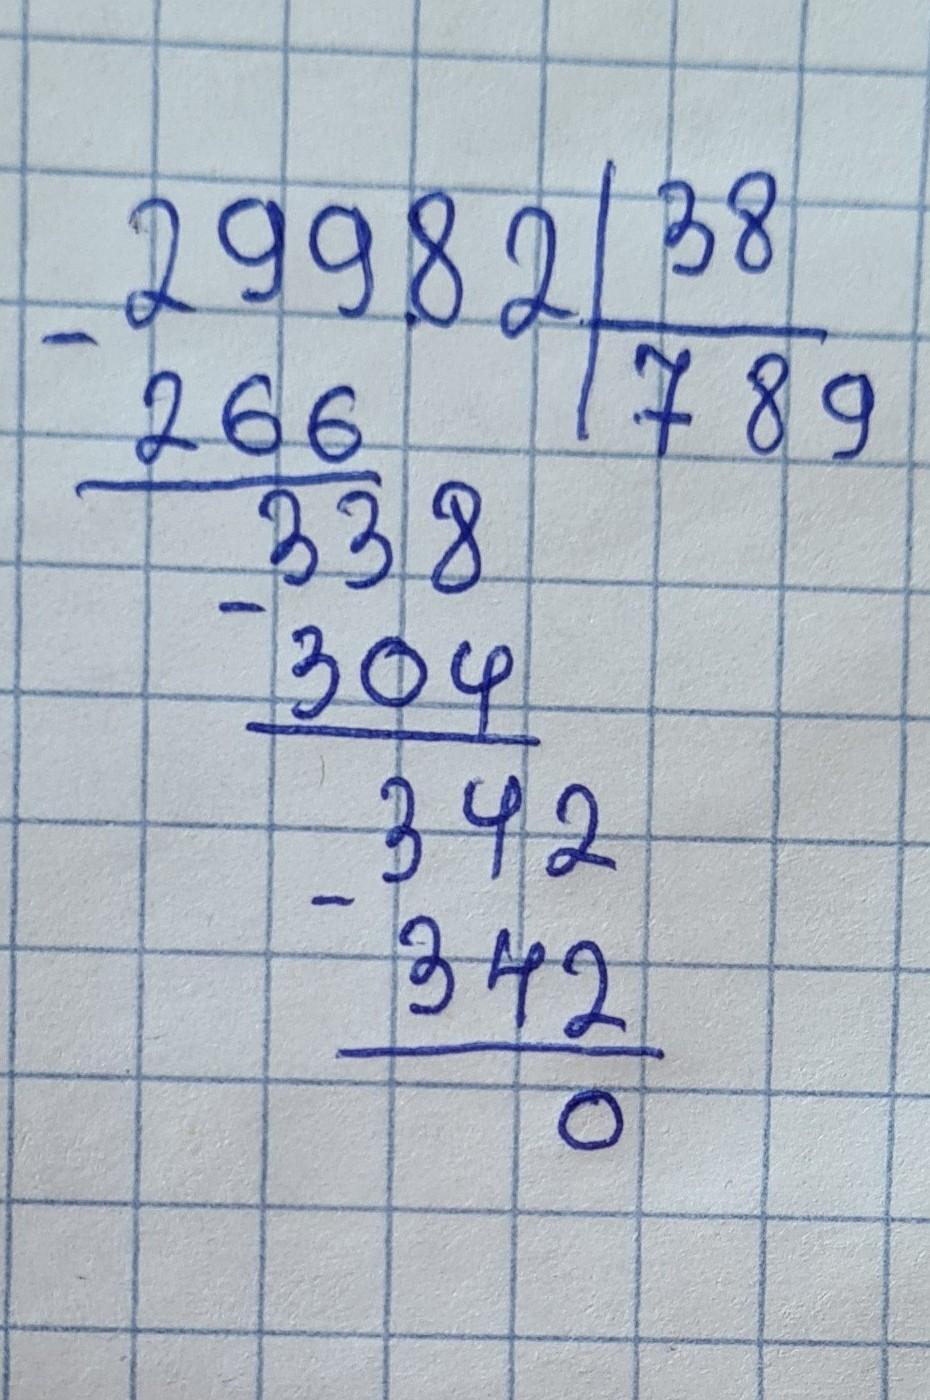 29982 | 38
- 266 | 789
338
- 304
342
- 342
0